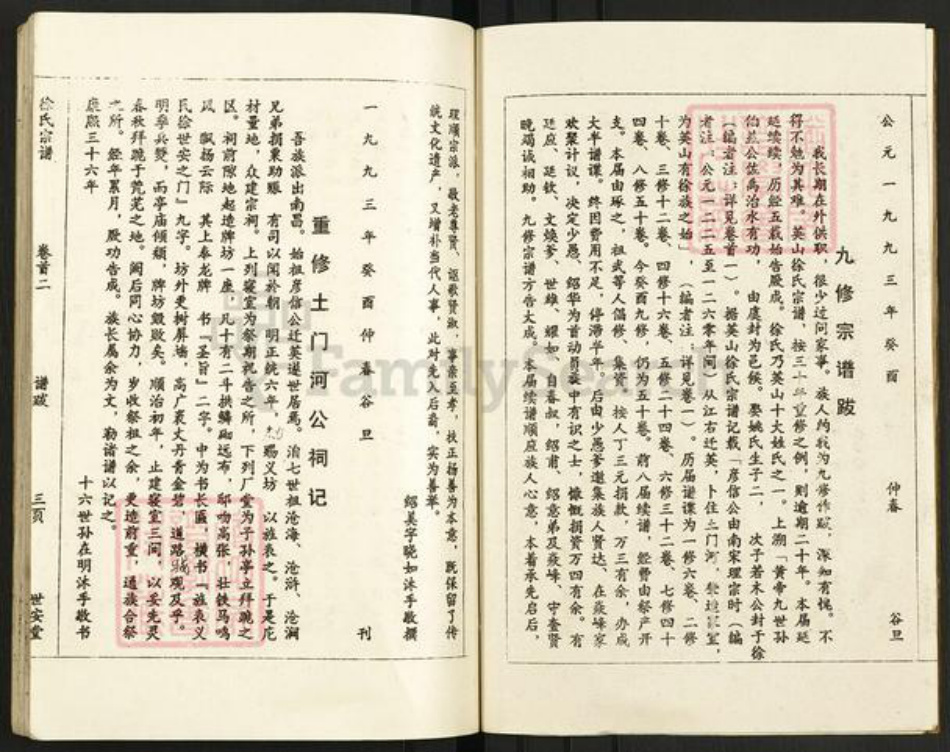 公元一九九三年癸酉 仲春 谷旦
九修宗谱跋
我长期在外供职,很少过问家事。族人约我为九修作跋,深知有愧。不
得不勉为其难。英山徐氏宗谱,按三十年重修之例,则逾期二十年。本届延
延续续,历经五载始告厥成。徐氏乃英山十大姓氏之一。上溯「黄帝九世孙
伯益公佐禹治水有功,由虞封为邑侯。娶姚氏生子二,次子若木公封于徐
(编者注:详见卷首一)。据英山徐氏宗谱记载「彦信公由南宋理宗时(编
者注:公元一二二五至一二六零年间)从江右迁英,卜住土门河,
为英山有徐族之始」,(编者注:详见卷一)。历届谱谍为一修六卷、二修
十卷、三修十二卷、四修十六卷、五修二十四卷、六修三十二卷、七修四十
四卷、八修五十卷。今癸酉九修,仍为五十卷。前八届续谱,经费由祭产开
支。本届由琢之、祖武等人倡修,集资,按人丁三元捐款,万三有余,办成
大半谱谍。终因费用不足,停滞半年,后由少愚爹邀集族人贤达、在焱峰家
欢聚计议,决定少愚、绍华为首动员族中有识之士,慷慨捐资万四有余。有
廷应、廷钦、文焕爹、世雄、耀如、自春叔,绍甫、绍意弟及焱峰、守奎贤
晚竭诚相助。九修宗谱方告大成。本届续谱顺应族人心意,本着承先启后,
理顺宗派,敬老尊贤、讴歌贤淑,事亲至孝,扶正扬善为本意,既保留了传
统文化遗产,又增补当代人事,此对先人后裔,实为善举。
绍美字晓如沐手敬撰
一九九三年癸酉仲春谷旦 刊
重修土门河公祠记
吾族派出南昌。始祖彦信公迁英遂世居焉。洎七世祖沧海、沧浒、沧澜
兄弟捐粟助赈,有司以闻於朝,明正统六年,赐义坊,以旌表之。于是庀
材量地,众建宗祠。上列寝室为祭期祝告之所,下列厂堂为子孙亭立拜跪之
区。祠前隙地起造牌坊一座,凡十有二斗拱鳞砌远布,邸吻高张,壮铁马鸣
风,飘扬云际,其上奉龙牌,书『圣旨』二字。中为书长匾,横书『旌表义
民徐世安之门』九字。坊外更树屏墙,高广袤丈丹青金碧,道路 观及乎。
明季兵燹,而亭庙倾颓,牌坊毁败矣。顺治初年,止建寝室三间,以妥先灵
春秋拜跪于荒芜之地。阙后同心协力,岁收祭祖之余,更造前重,通族合祭
之所。经年累月,厥功告成。族长属余为文,勒诸谱以记之。
康熙三十六年 十六世孙在明沐手敬书
徐氏宗谱 卷首二 谱跋 三页 世安堂
FamilySearch